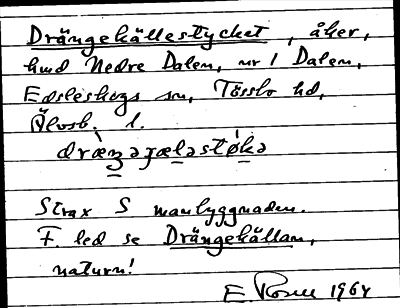 Drängekällestycket, åker,
hmd Nedre Dalen, nr 1 Dalen,
Edsleskogs sn, Tössbo hd,
Älvsb. l.
dræŋəɟæləstøkə
Strax S manbyggnaden.
F. led se Drängekällan,
naturn!
E. 1964